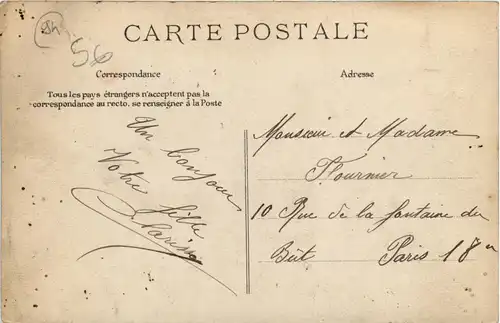 84
56
CARTE POSTALE
Correspondance
Adresse
Tous les pays étrangers n'acceptent pas la
correspondance au recto. se renseigner à la Poste
Un bonjour
Votre fille
Clarisse
Monsieur et Madame
Fournier
10 Rue de la fontaine du
But Paris 18e